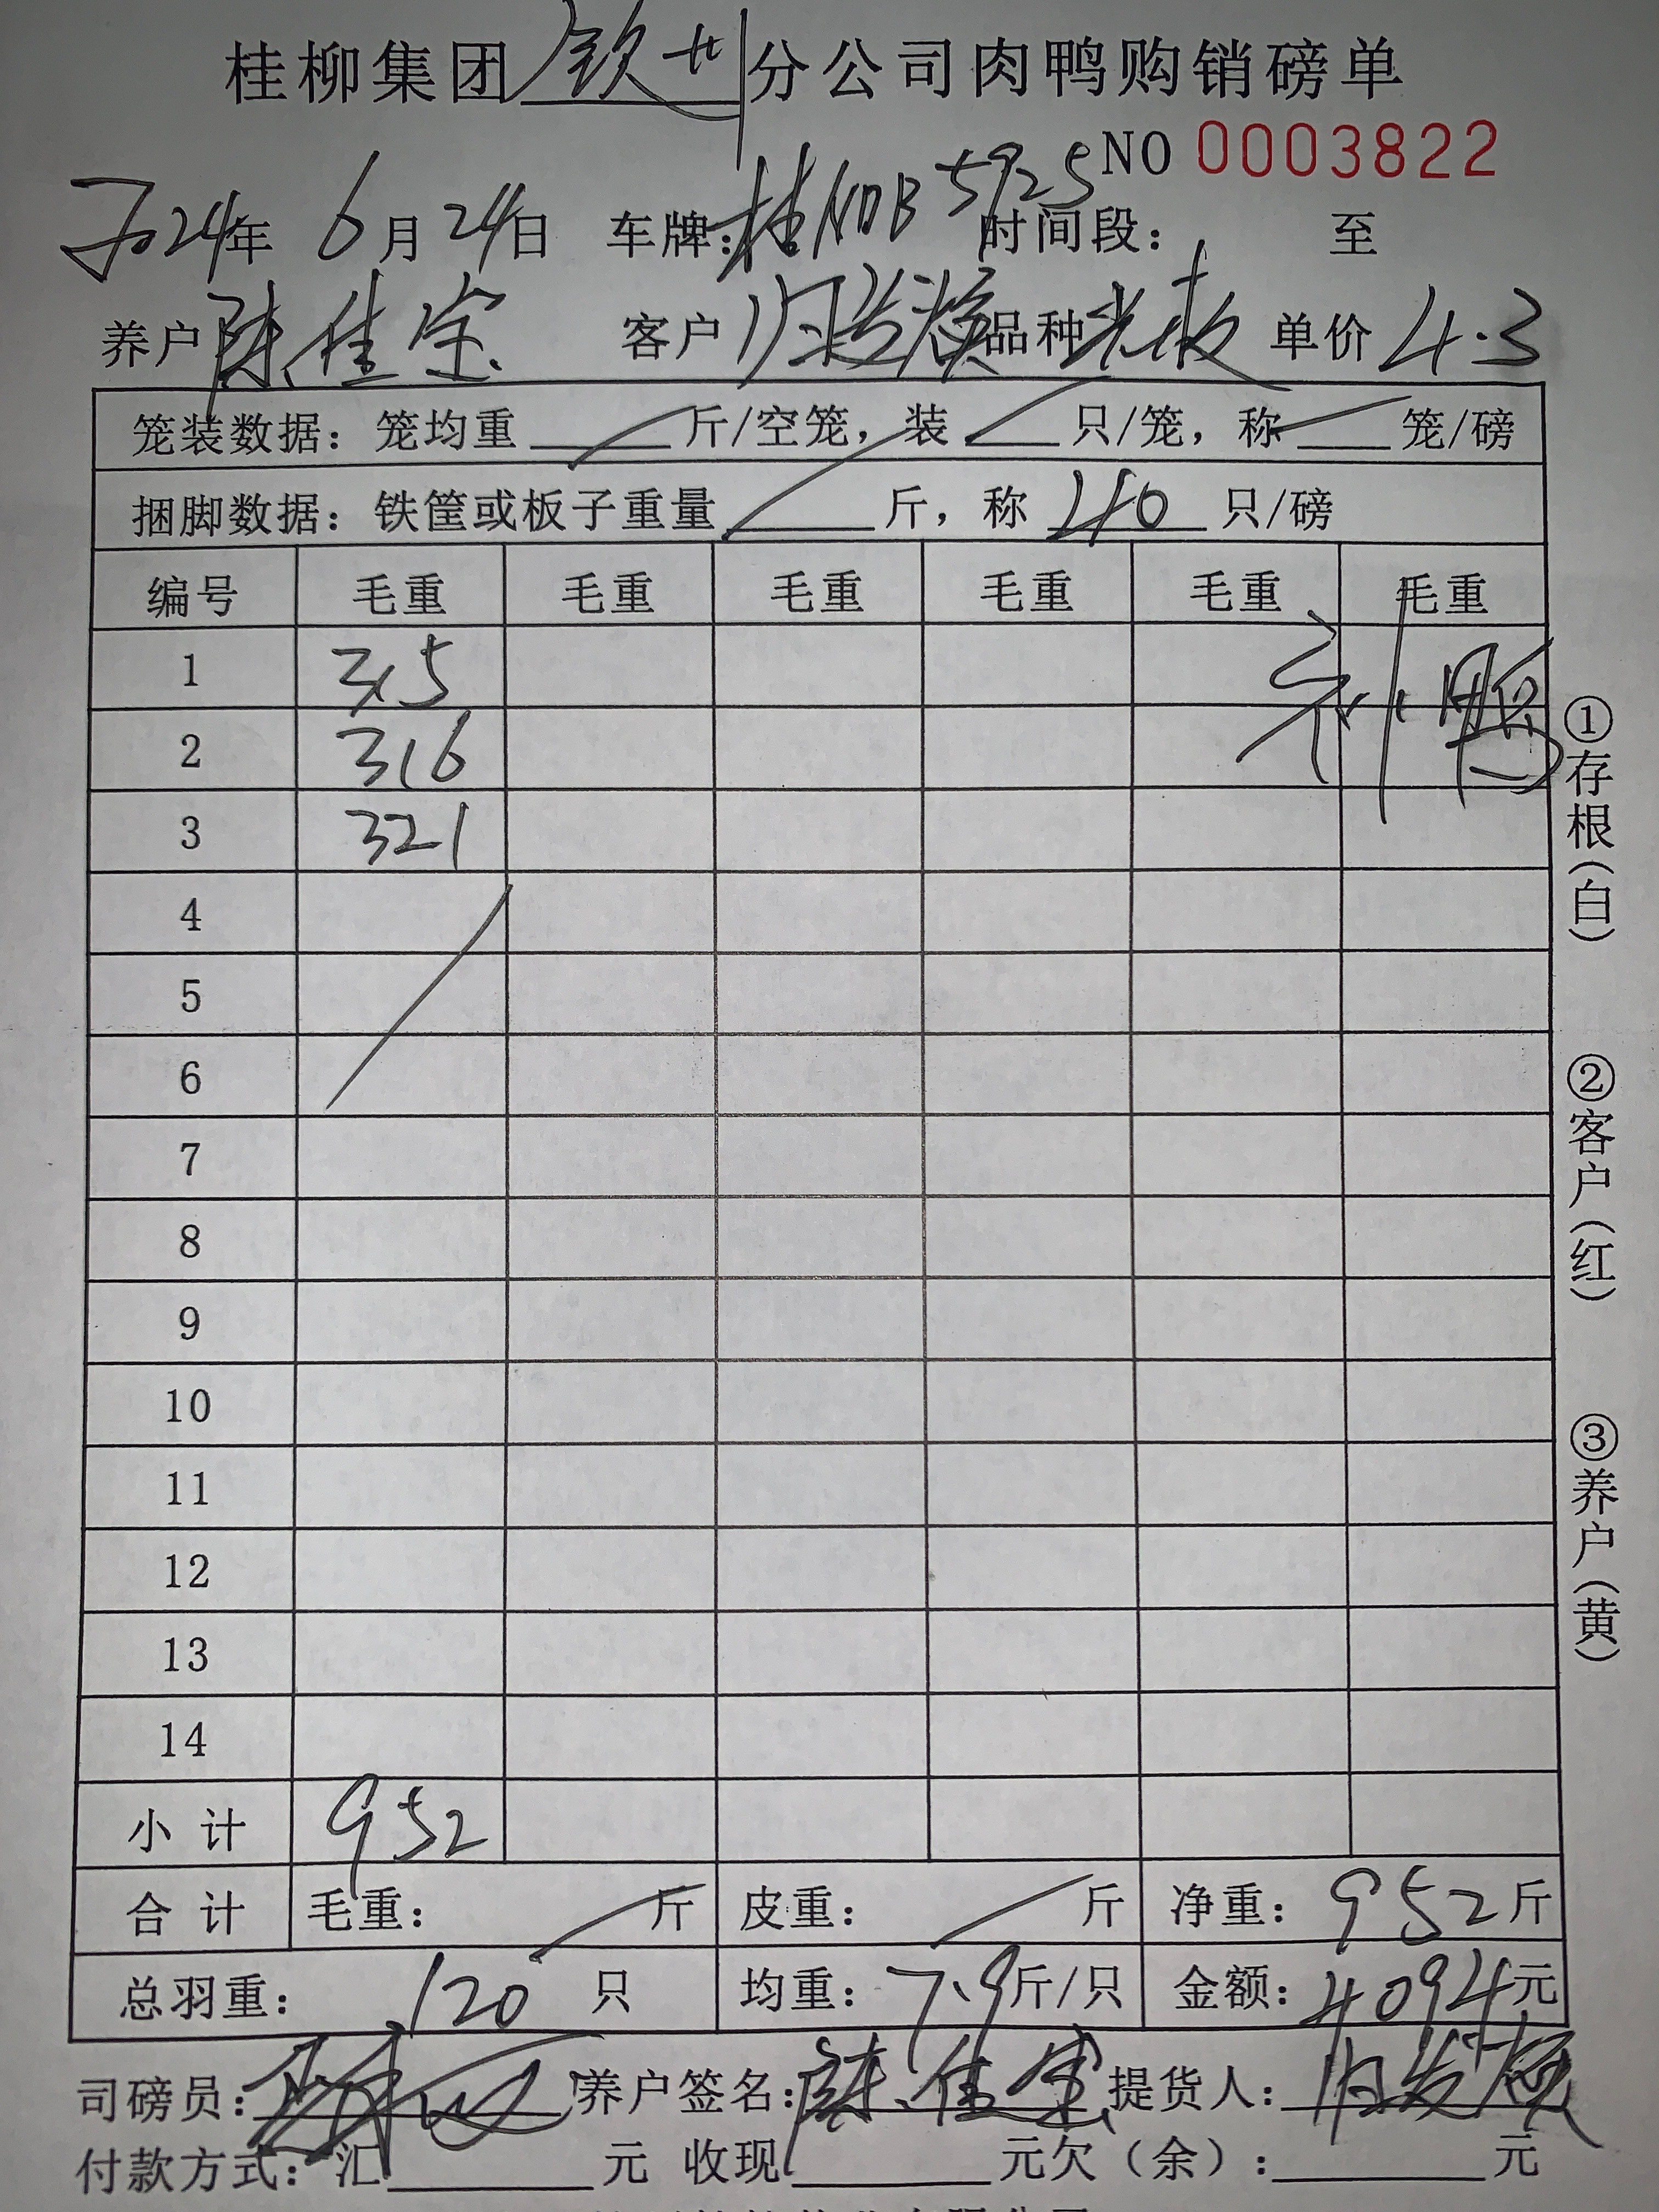 桂柳集团 钦州 分公司肉鸭购销磅单
NO 0003822
2024年 6月24日 车牌:桂N0B5925 时间段: 至
养户 陈佳宝 客户 品种 单价 4.3
笼装数据: 笼均重 / 斤/空笼, 装 / 只/笼, 称 / 笼/磅
捆脚数据: 铁筐或板子重量 / 斤, 称 40 只/磅
编号 毛重 毛重 毛重 毛重 毛重 毛重
1 315
2 316
3 321
4
5
6
7
8
9
10
11
12
13
14
小计 952
合计 毛重: / 斤 皮重: / 斤 净重: 952斤
总羽重: 120 只 均重: 7.9斤/只 金额: 4094元
司磅员: 养户签名: 陈佳宝 提货人:
付款方式: 汇 元 收现 元欠(余): 元
①存根(白)
②客户(红)
③养户(黄)